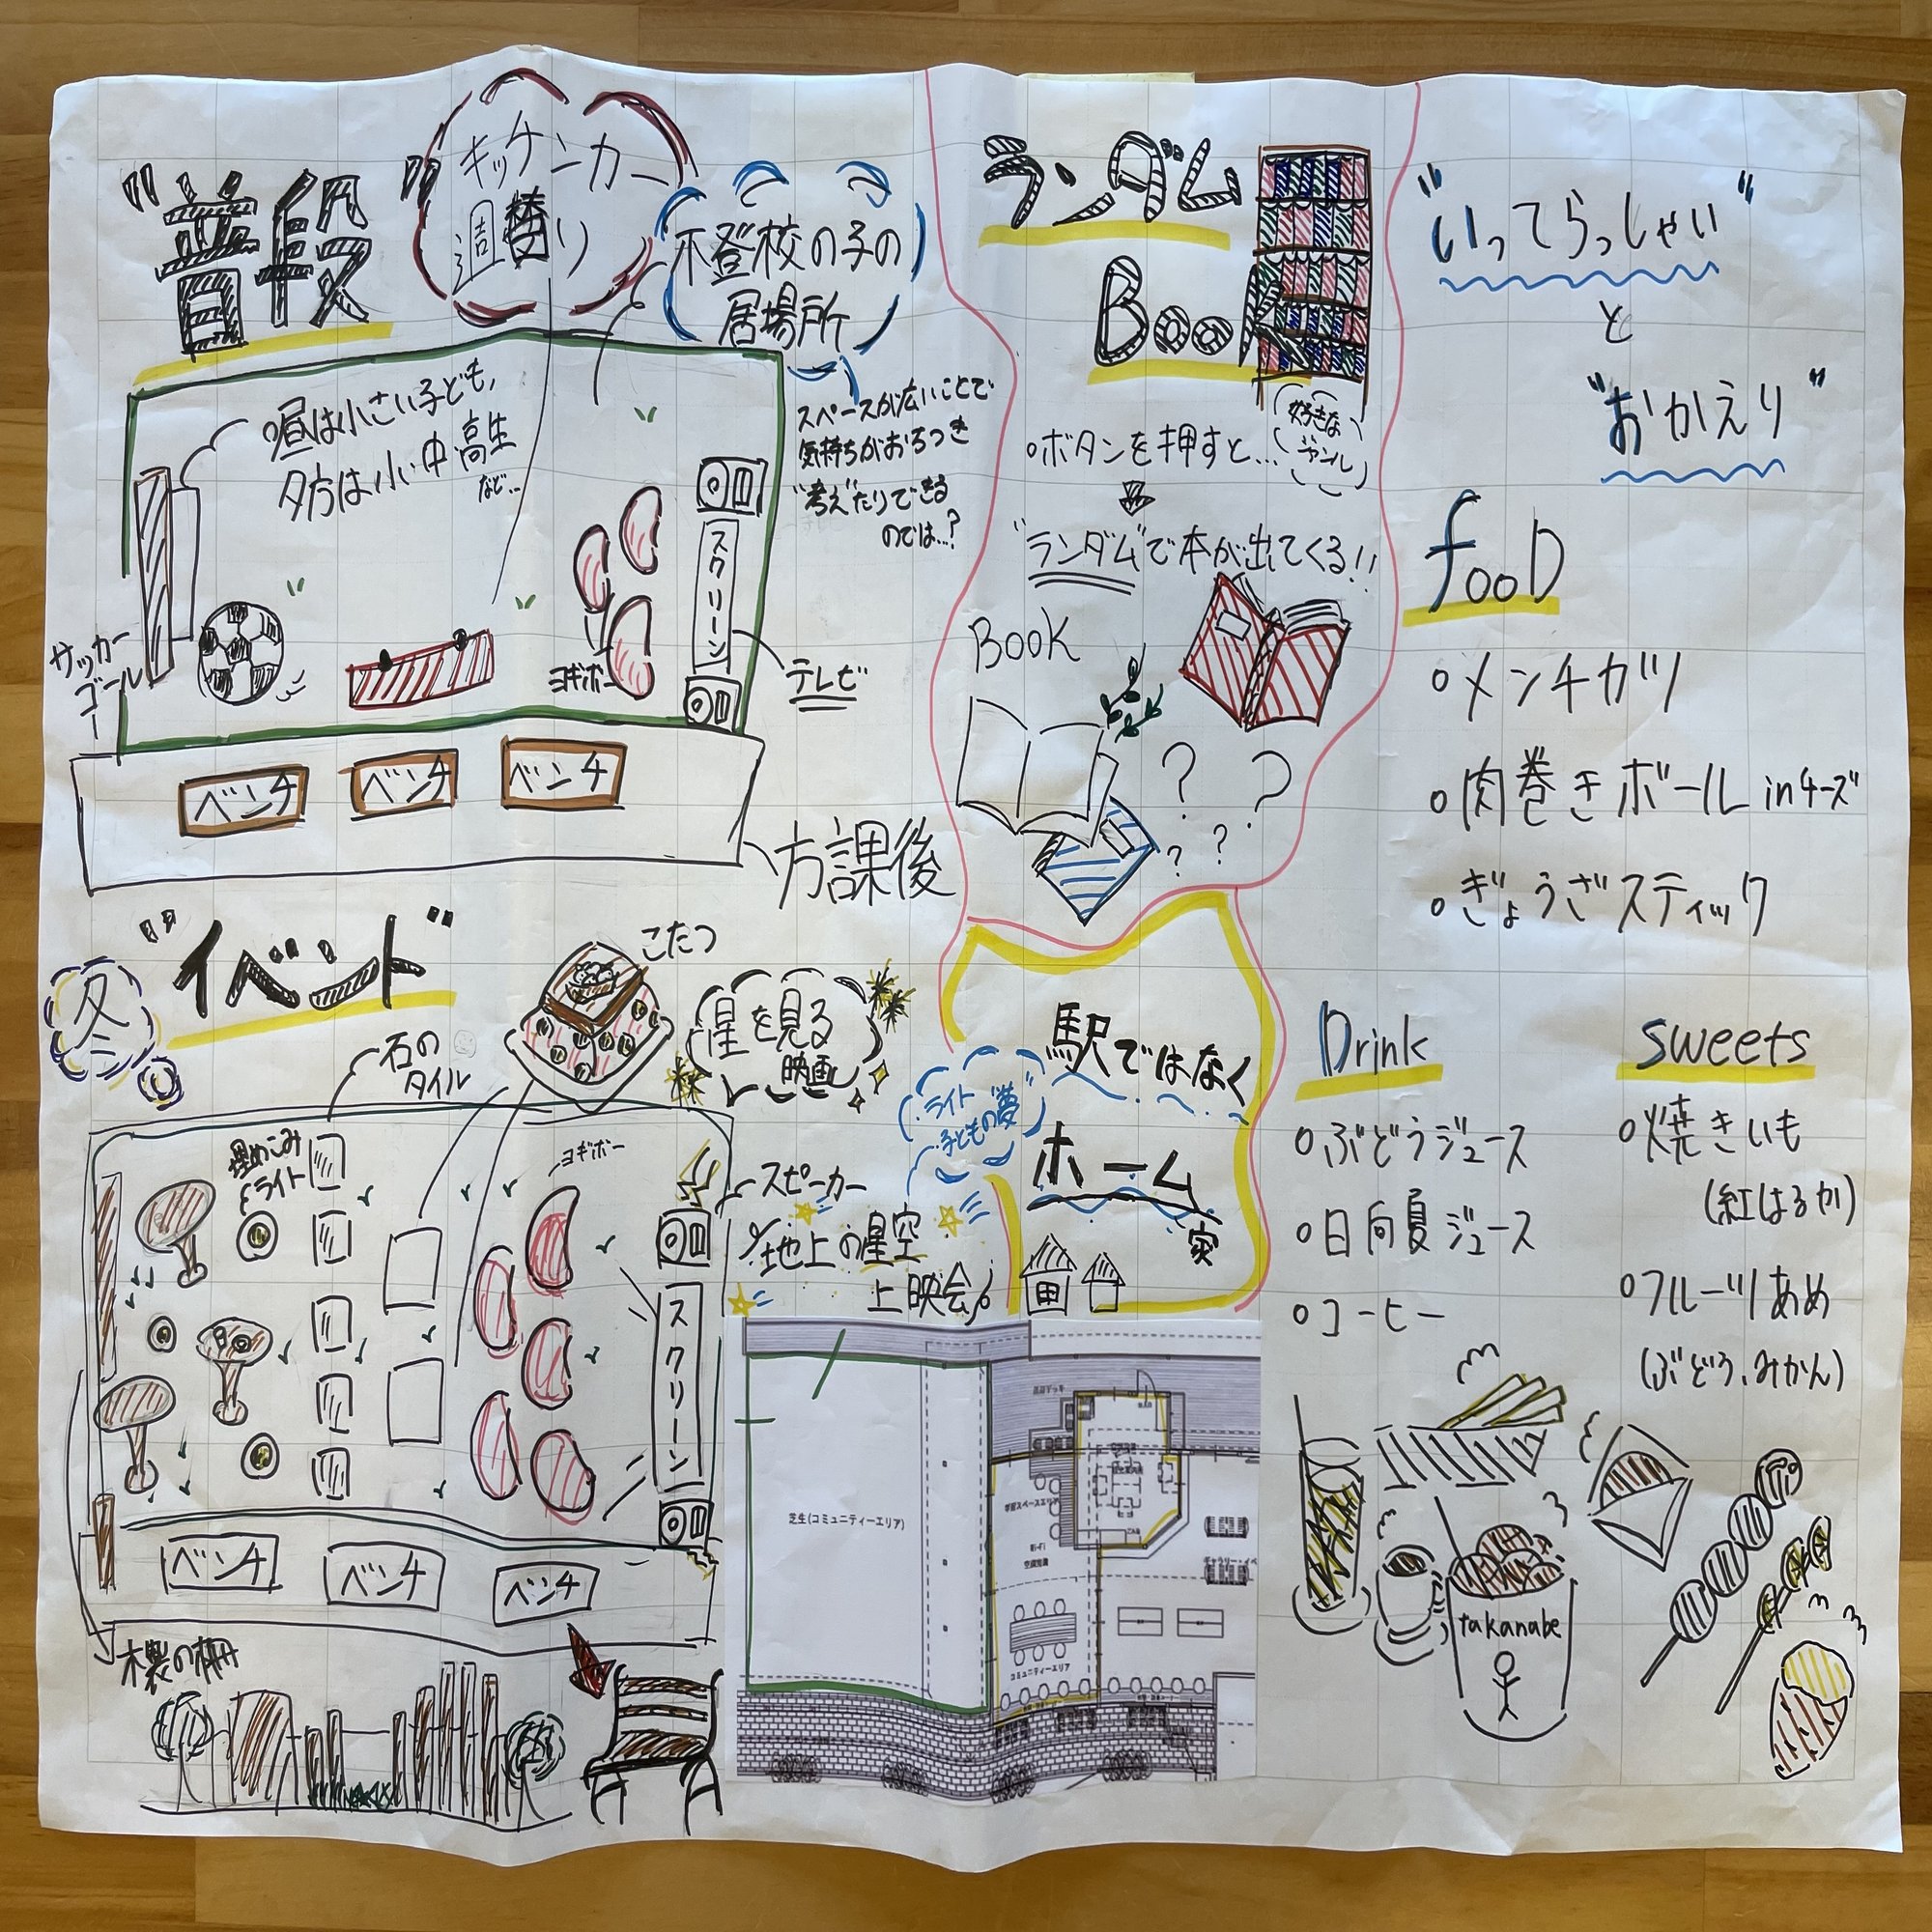 "普段"
キッチンカー
週替り
不登校の子の
居場所
昼は小さい子ども、
夕方は小中高生
など…
スペースが広いことで
気持ちがおちつき
"考え"たりできる
のでは…?
サッカー
ゴール
ヨギボー
スクリーン
テレビ
ベンチ
ベンチ
ベンチ
方課後
ランダム
BooK
ボタンを押すと…
好きな
ジャンル
"ランダム"で本が出てくる!!
BooK
? ?
? ?
"いってらっしゃい"
と
"おかえり"
fooD
メンチカツ
肉巻きボール inチーズ
ぎょうざスティック
Drink
ぶどうジュース
日向夏ジュース
コーヒー
sweets
焼きいも
(紅はるか)
フルーツあめ
(ぶどう、みかん)
takanabe
冬
"イベント"
こたつ
石の
タイル
星を見る
映画
埋めこみ
ライト
ヨギボー
スピーカー
地上の星空
上映会
スクリーン
ベンチ
ベンチ
ベンチ
木製の柵
ライト
子どもの"夢"
駅ではなく
ホーム
家
芝生(コミュニティーエリア)
学習スペースエリア
Wi-Fi
コミュニティーエリア